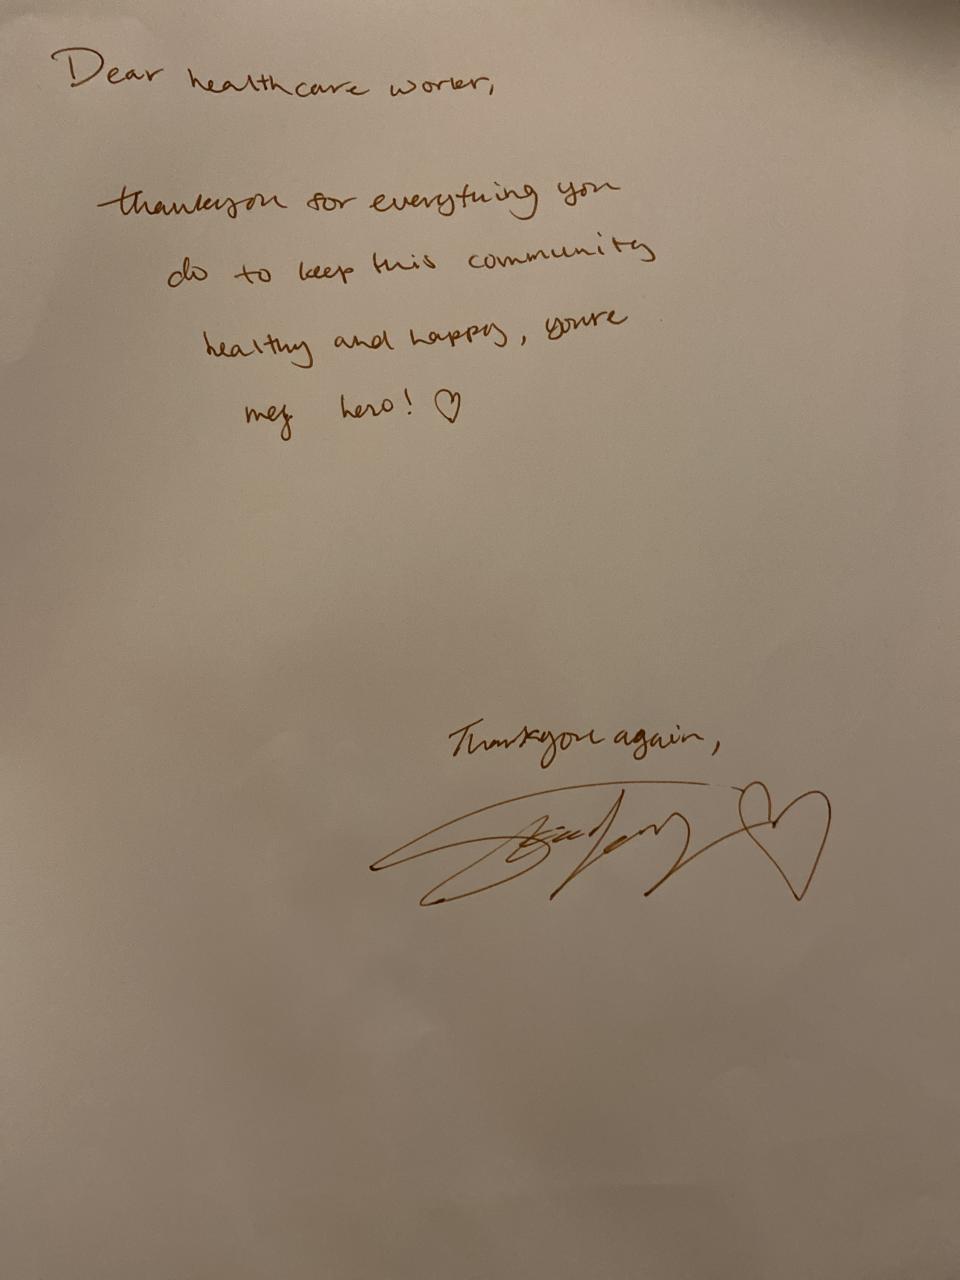 Dear healthcare worker,
thankyou for everything you
do to keep this community
healthy and happy, youre
my hero! ♡
Thankyou again,